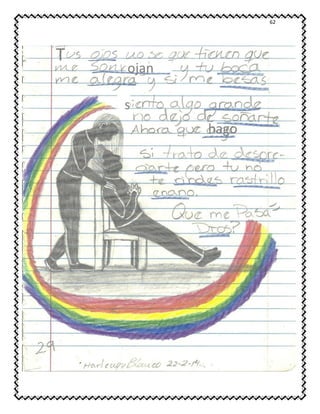 62
Tus ojos no se que tienen que
me Sonrojan y tu boca
me alegra y si me besas
siento algo grande
no dejo de soñarte
Ahora que hago
si trato de despre-
ciarte pero tu no
te rindes rastrillo
enano.
Que me Pasa
Dios?
29
22-2-14